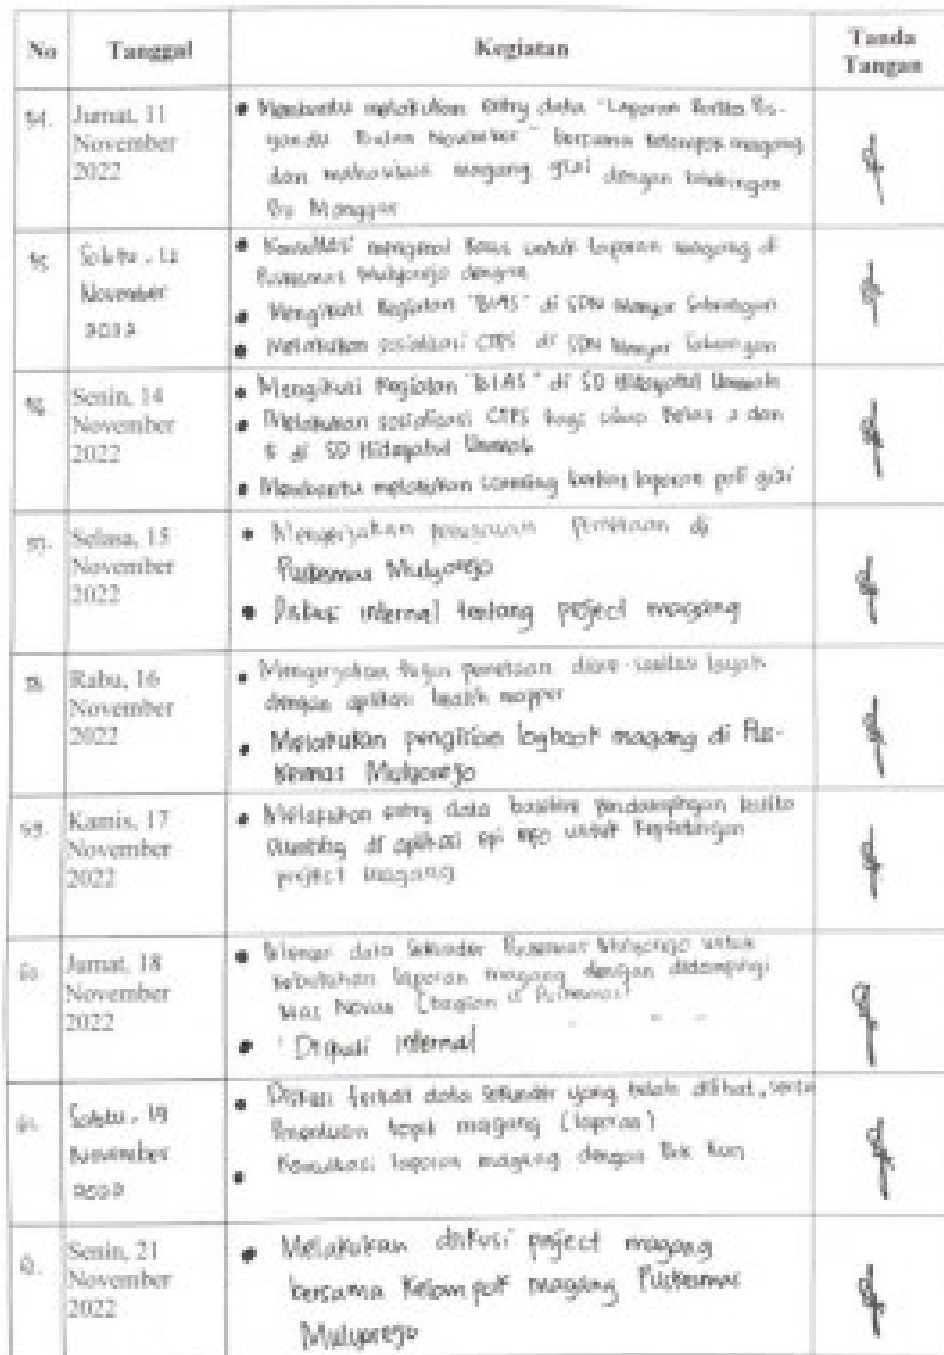 No Tanggal Kegiatan Tanda Tangan
54. Jumat, 11 November 2022
• Membantu melakukan entry data "Laporan
Bulan November" bersama kelompok magang
dan mahasiswa magang gizi dengan bimbingan
Bu Manggar
55 Sabtu, 12 November 2022
• Konsultasi mengenai kasus untuk laporan magang di
Puskesmas Mulyorejo dengan
• Mengikuti kegiatan "BIAS" di SDN
• Melakukan sosialisasi CTPS di SDN
56 Senin, 14 November 2022
• Mengikuti kegiatan "BIAS" di SD Hidayatul Ummah
• Melakukan sosialisasi CTPS bagi siswa kelas 2 dan
5 di SD Hidayatul Ummah
• Membantu melakukan scanning berkas laporan poli gizi
57. Selasa, 15 November 2022
• Mengerjakan di
Puskesmas Mulyorejo
• Diskusi internal tentang project magang
58. Rabu, 16 November 2022
• Mengerjakan tugas pemetaan diare-sanitasi layak
dengan aplikasi health mapper
• Melakukan pengisian logbook magang di Pus-
kesmas Mulyorejo
59. Kamis, 17 November 2022
• Melakukan entry data baseline pendampingan balita
stunting di aplikasi epi info untuk kepentingan
project magang
60 Jumat, 18 November 2022
• data sekunder Puskesmas Mulyorejo untuk
kebutuhan laporan magang dengan didampingi
Mas (bagian Puskesmas)
• Diskusi internal
61. Sabtu, 19 November 2022
• Diskusi terkait data sekunder yang telah dilihat, serta
penentuan topik magang (laporan)
• Konsultasi laporan magang dengan Pak
62. Senin, 21 November 2022
• Melakukan diskusi project magang
bersama kelompok magang Puskesmas
Mulyorejo